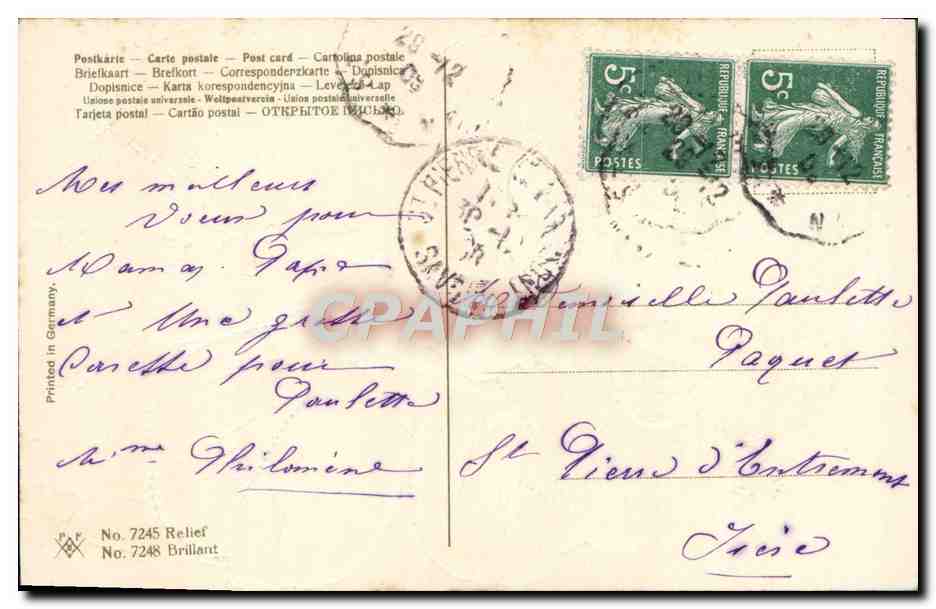 Postkarte — Carte postale — Post card — Cartolina postale
Briefkaart — Brefkort — Correspondenzkarte — Dopisnica
Dopisnice — Karta korespondencyjna — Levelező-Lap
Unione postale universale — Weltpostverein — Union postale universelle
Tarjeta postal — Cartão postal — ОТКРЫТОЕ ПИСЬМО.
5c REPUBLIQUE FRANÇAISE POSTES
5c REPUBLIQUE FRANÇAISE
Mes meilleurs
Voeux pour
Maman, Papa
et Une grosse
Caresse pour
Paulette
Mme Philomène
Mademoiselle Paulette
Paquet
St Pierre d'Entremont
Isère
Printed in Germany.
CPAPHIL
No. 7245 Relief
No. 7248 Brillant